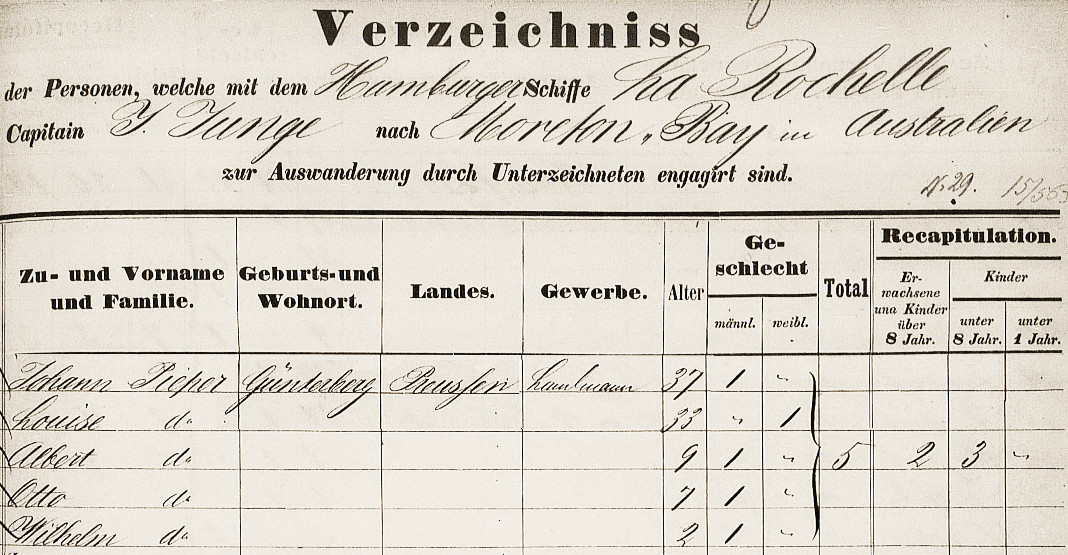 Verzeichniss
der Personen, welche mit dem Hamburger Schiffe La Rochelle
Capitain J. Junge nach Moreton Bay in Australien
zur Auswanderung durch Unterzeichneten engagirt sind.
N. 29. 15/5 63
Zu- und Vorname und Familie. Geburts- und Wohnort. Landes. Gewerbe. Alter Geschlecht männl. weibl. Total Recapitulation. Erwachsene una Kinder über 8 Jahr. Kinder unter 8 Jahr. unter 1 Jahr.
Johann Pieper Günterberg Preussen Landmann 37 1 "
Louise do 33 " 1
Albert do 9 1 " 5 2 3 "
Otto do 7 1 "
Wilhelm do 2 1 "